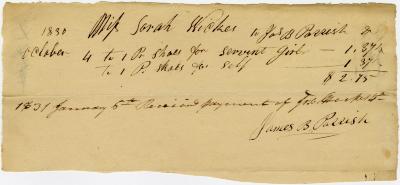 1830 Miss Sarah Wickes to Jas B Parrish Dr
October 4 to 1 Pr Shoes for Servant Girl - 1.37½
to 1 P. Shoes for Self 1 37½
$ 2.75
1831 January 5th Received payment of
James B. Parrish